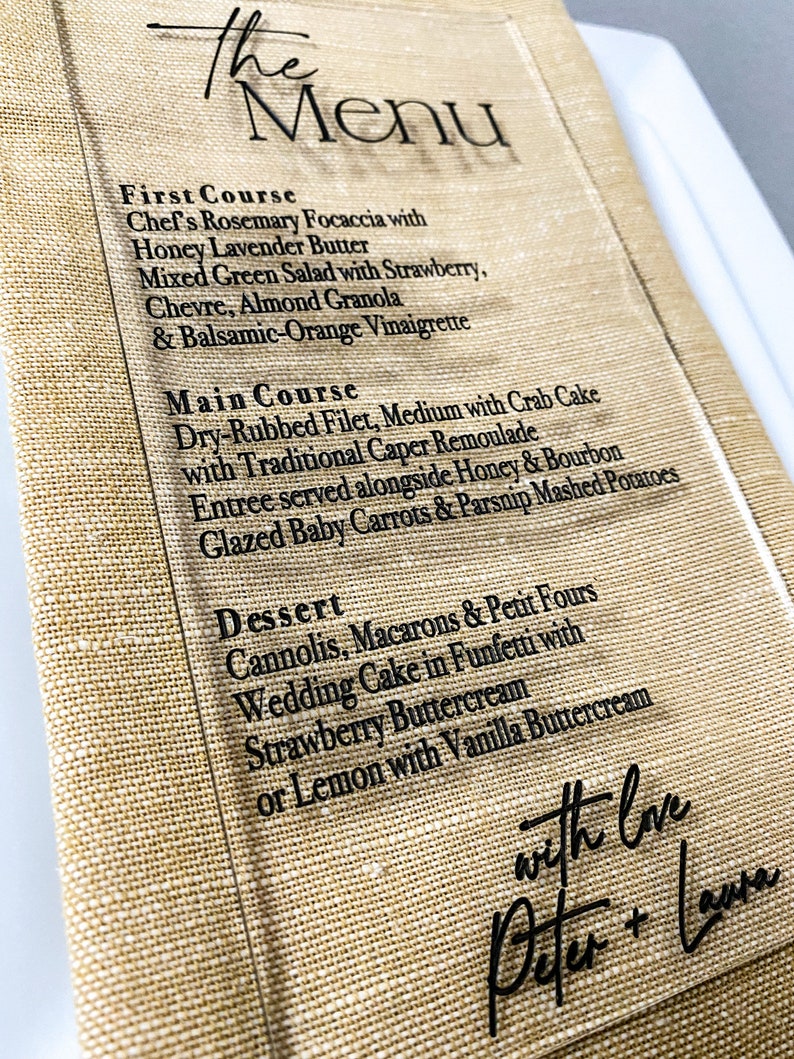 the
Menu
First Course
Chef's Rosemary Focaccia with
Honey Lavender Butter
Mixed Green Salad with Strawberry,
Chevre, Almond Granola
& Balsamic-Orange Vinaigrette
Main Course
Dry-Rubbed Filet, Medium with Crab Cake
with Traditional Caper Remoulade
Entree served alongside Honey & Bourbon
Glazed Baby Carrots & Parsnip Mashed Potatoes
Dessert
Cannolis, Macarons & Petit Fours
Wedding Cake in Funfetti with
Strawberry Buttercream
or Lemon with Vanilla Buttercream
with love
Peter + Laura